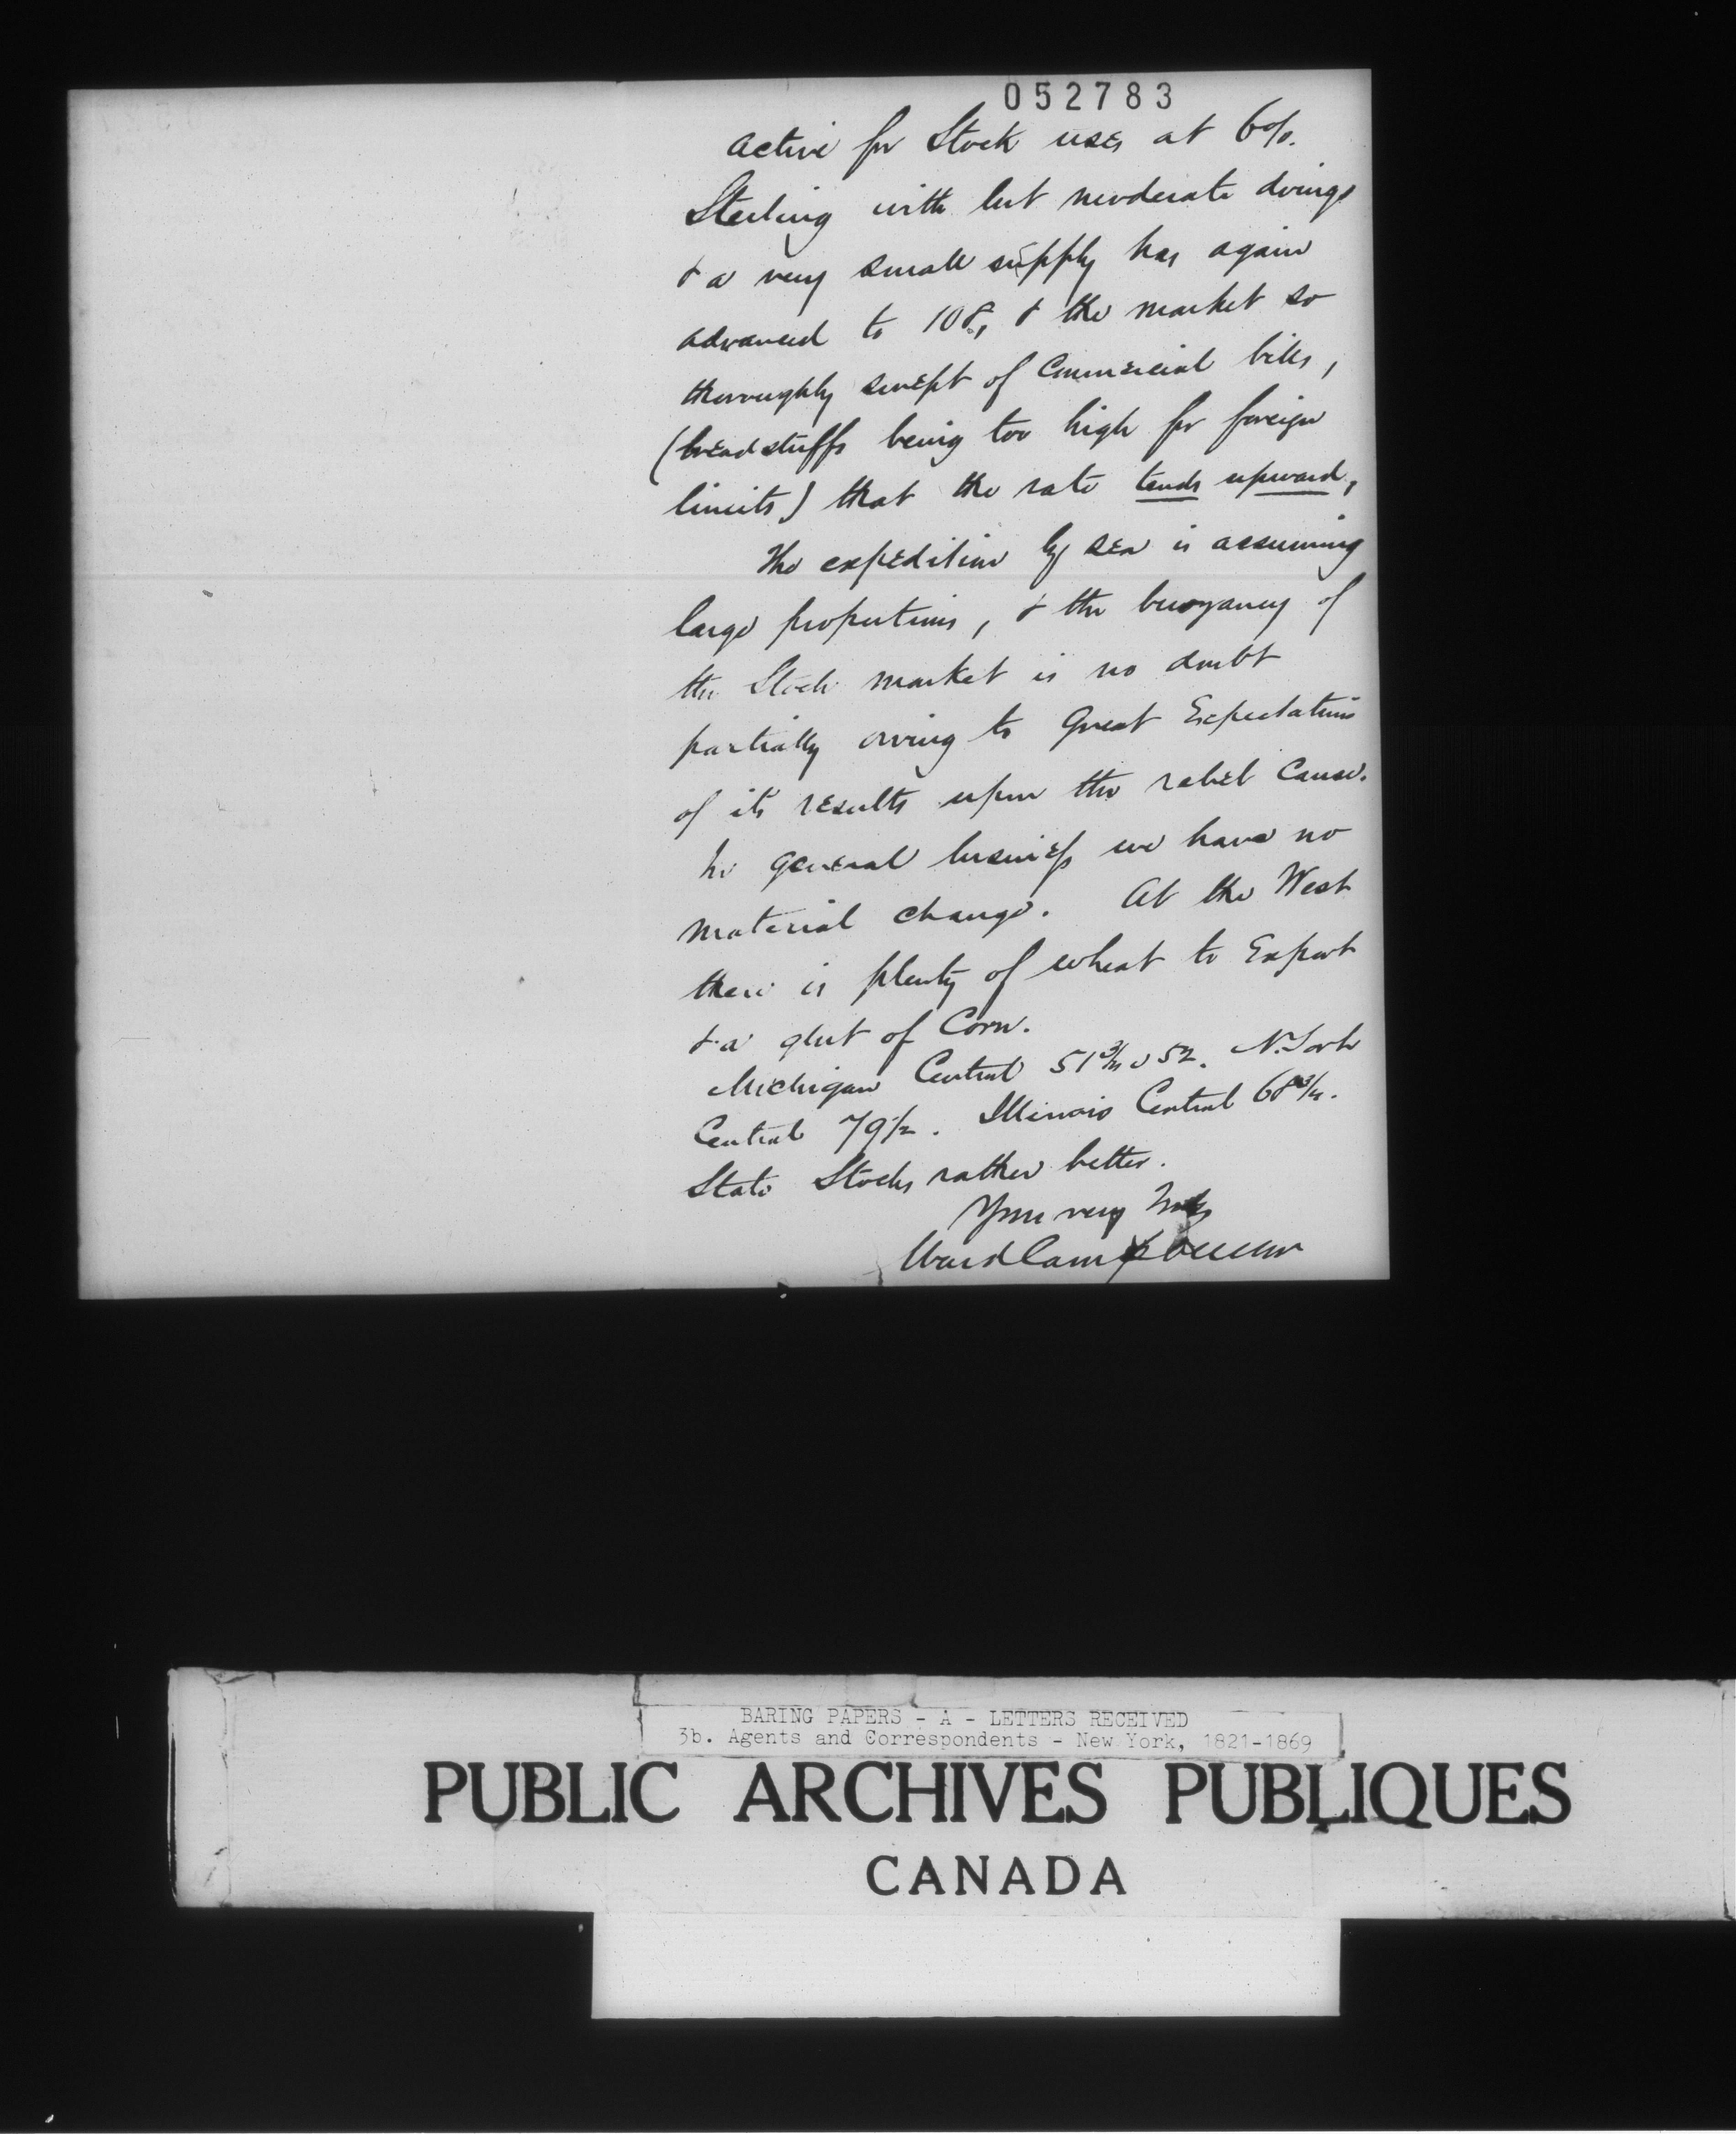 052783
active for Stock uses at 6%.
Sterling with but moderate doings
& a very small supply has again
advanced to 108, & the market so
thoroughly swept of Commercial bills,
(breadstuffs being too high for foreign
limits) that the rate tends upward,
The expedition by sea is assuming
large proportions, & the buoyancy of
the Stock market is no doubt
partially owing to Great Expectations
of its results upon the rebel Cause.
In general business we have no
material change. At the West
there is plenty of wheat to Export
& a glut of Corn.
Michigan Central 51 3/4 a 52. N. York
Central 79 1/2. Illinois Central 68 3/4.
State Stocks rather better.
Your very truly
Ward Campbell
BARING PAPERS - A - LETTERS RECEIVED
3b. Agents and Correspondents - New York, 1821-1869
PUBLIC ARCHIVES PUBLIQUES
CANADA